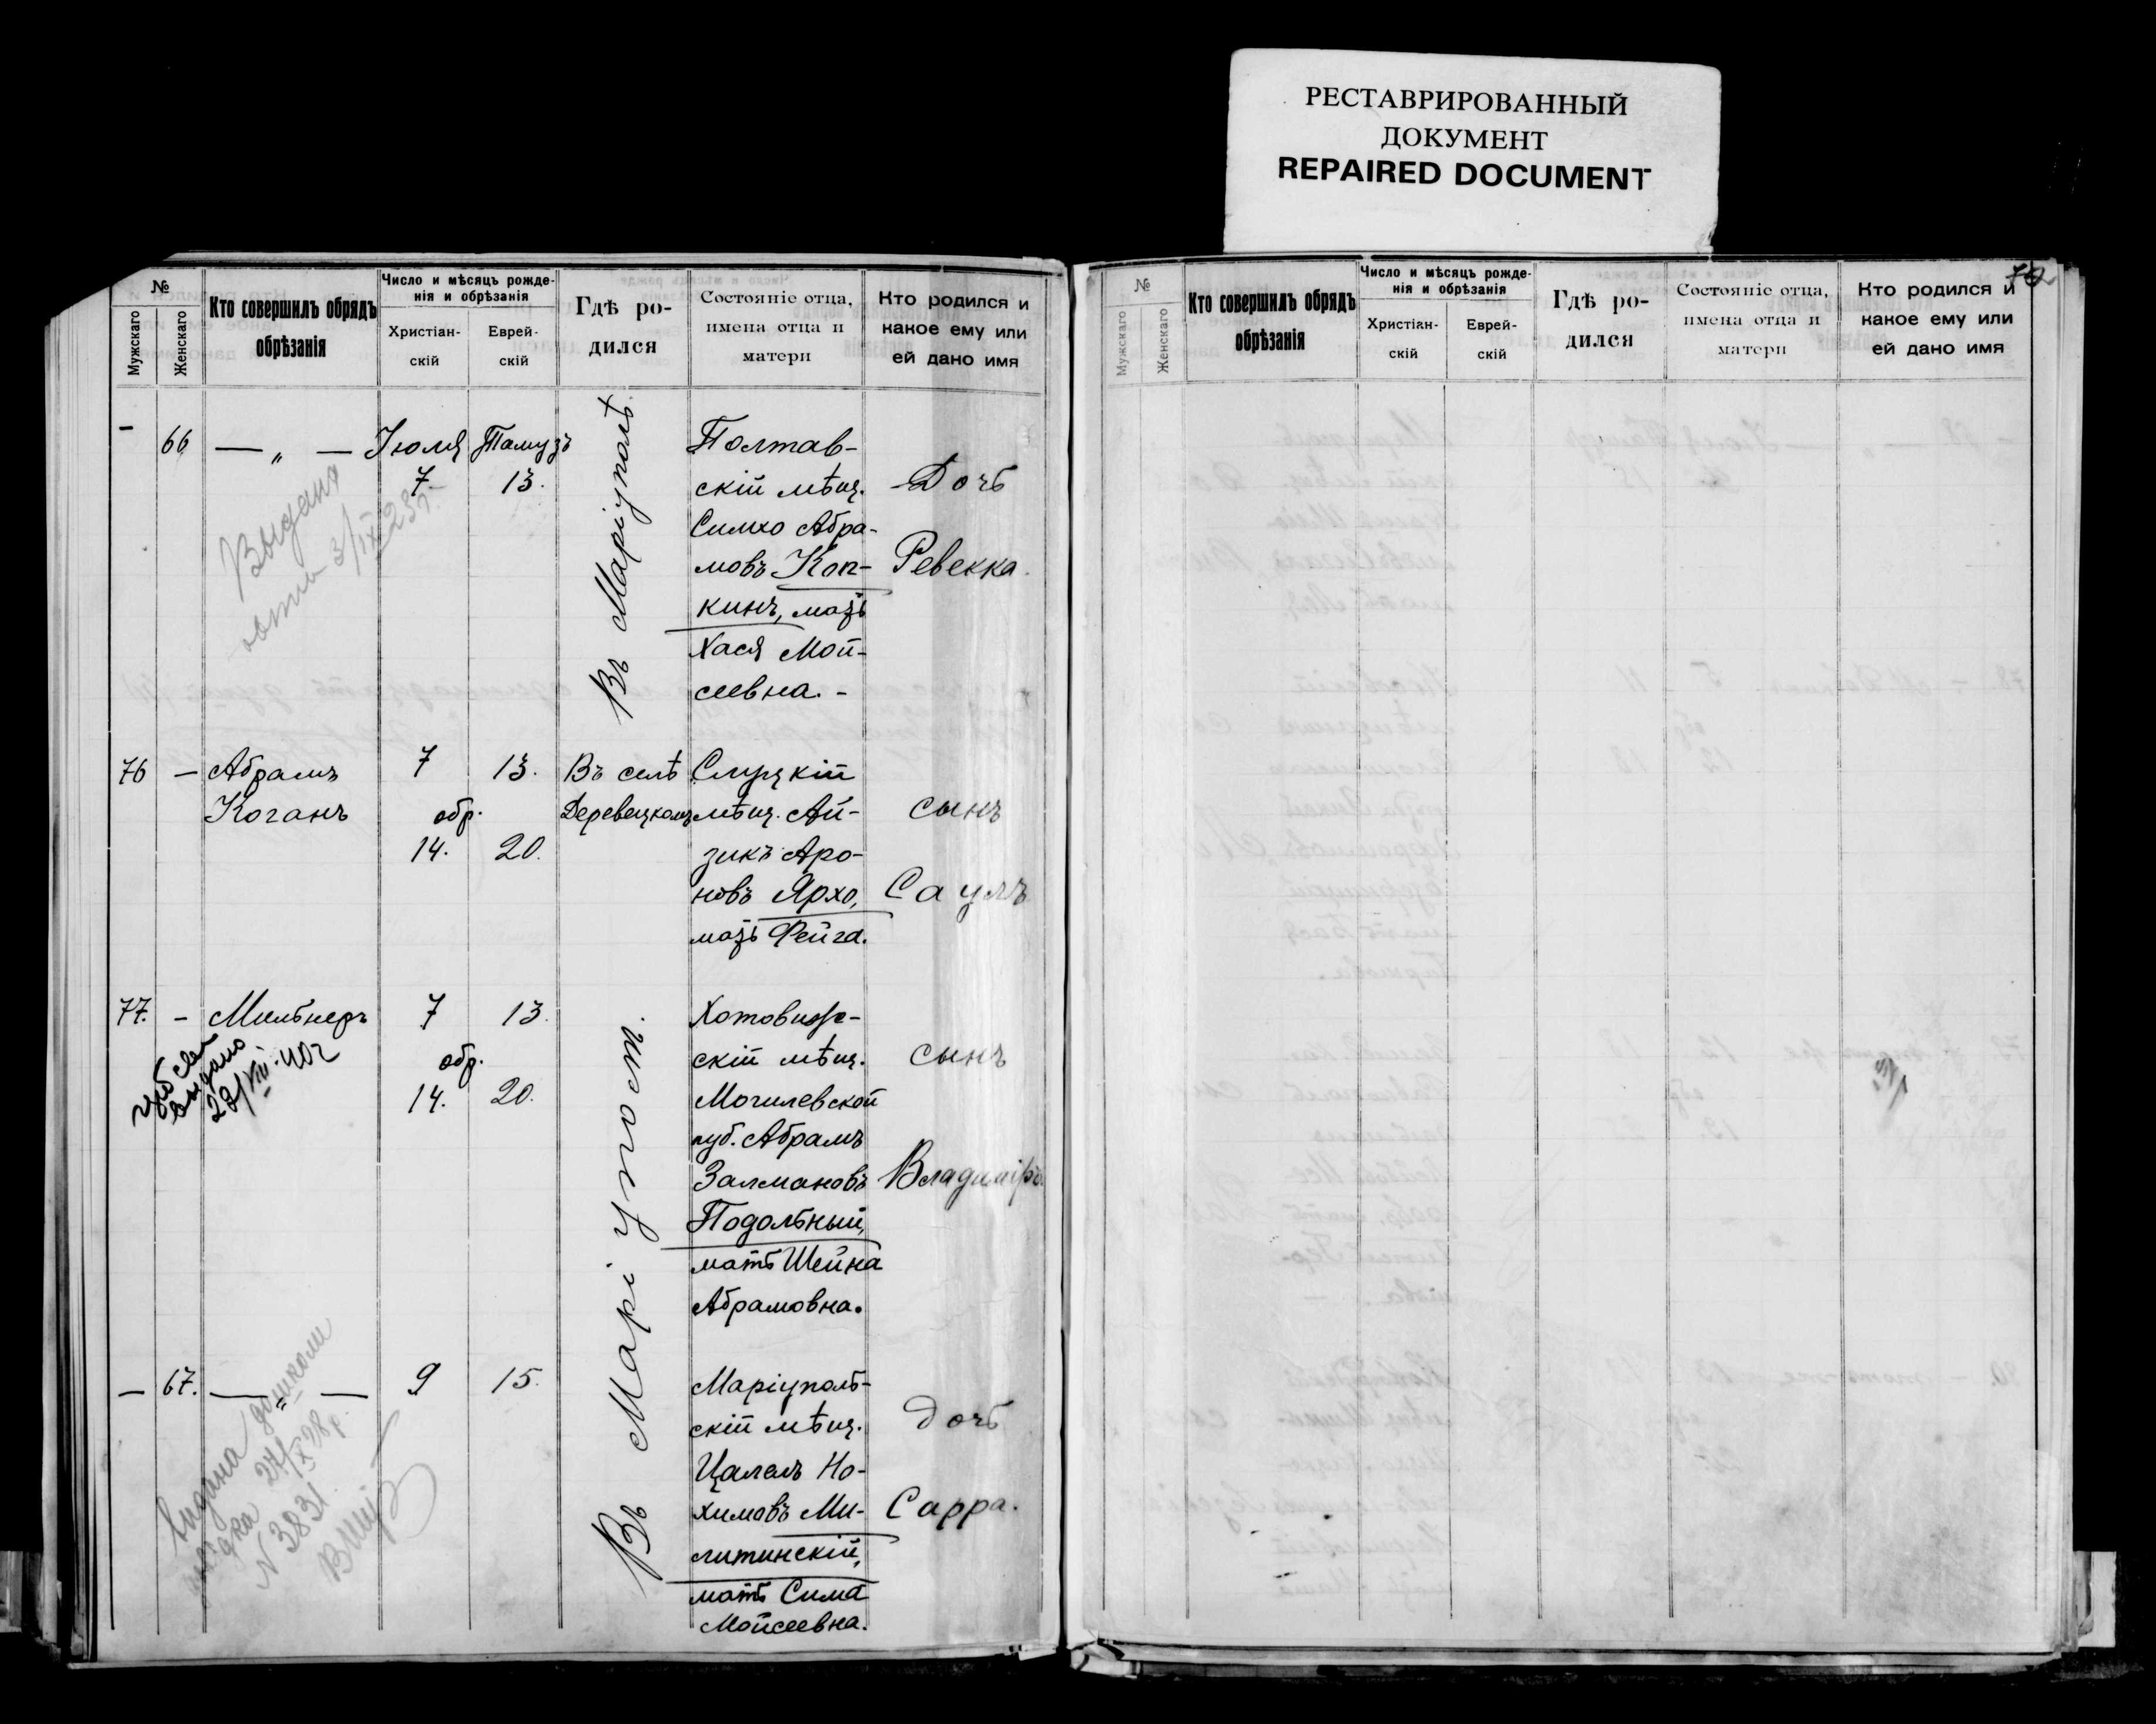 РЕСТАВРИРОВАННЫЙ
ДОКУМЕНТ
REPAIRED DOCUMENT
№
Мужскаго
Женскаго
Кто совершилъ обрядъ
обрѣзанія
Число и мѣсяцъ рожде-
нія и обрѣзанія
Христіан-
скій
Еврей-
скій
Гдѣ ро-
дился
Состояніе отца,
имена отца и
матери
Кто родился и
какое ему или
ей дано имя
— 66 — „ — Іюля Тамузъ
7 13.
Выдана
3/IX 23г.
Въ Маріуполѣ
Полтав-
скій мѣщ.
Симхо Абра-
мовъ Коп-
кинъ, мать
Хася Мой-
сеевна. -
Дочь
Ревекка.
76 —
Абрамъ
Коганъ
7 13.
обр.
14. 20.
Въ селѣ
Деревецкомъ
Слуцкій
мѣщ. Ай-
зикъ Аро-
новъ Ярхо,
мать Фейга.
сынъ
Саулъ
77. -
Мильнеръ
выдано
22/VIII 40г
7 13.
обр.
14. 20.
Въ Маріупол.
скій мѣщ.
Могилевской
губ. Абрамъ
Залмановъ
Подольный,
мать Шейна
Абрамовна.
сынъ
Владиміръ.
— 67. — „ —
9 15.
видана
27/X 28р.
N 3831
Маріуполь-
скій мѣщ.
Цалелъ Но-
химовъ Ми-
литинскій,
мать Сима
Мойсеевна.
дочь
Сарра.
№
Мужскаго
Женскаго
Кто совершилъ обрядъ
обрѣзанія
Число и мѣсяцъ рожде-
нія и обрѣзанія
Христіан-
скій
Еврей-
скій
Гдѣ ро-
дился
Состояніе отца,
имена отца и
матери
Кто родился и
какое ему или
ей дано имя